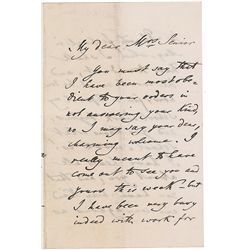 My dear Mrs Senior
You must say that
I have been most obe-
dient to your orders in
not answering your kind,
no I may say your dear,
charming welcome. I
really meant to have
come out to see you and
yours this week - but
I have been very busy
indeed with work for